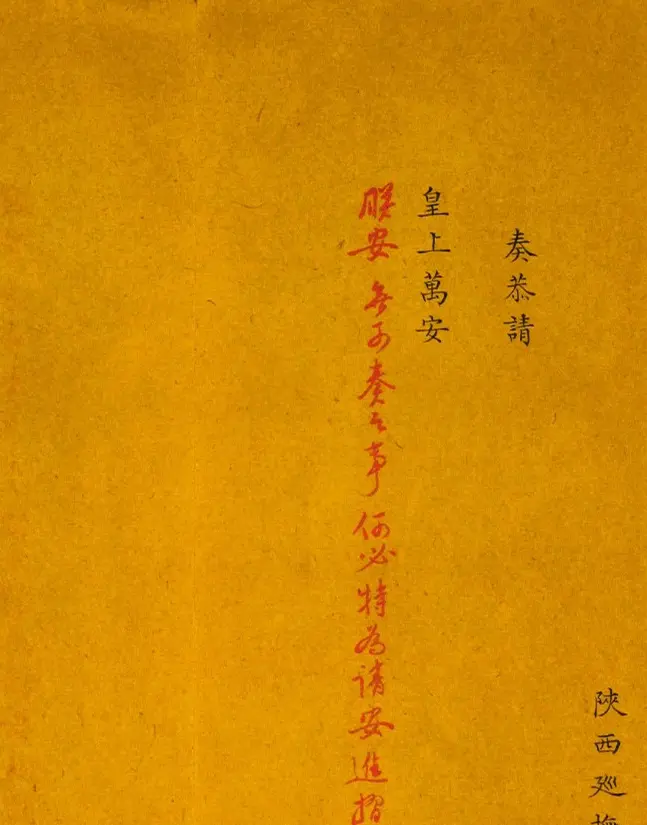 陝西廵撫
奏恭請
皇上萬安
朕安無可奏之事何必特為請安進摺